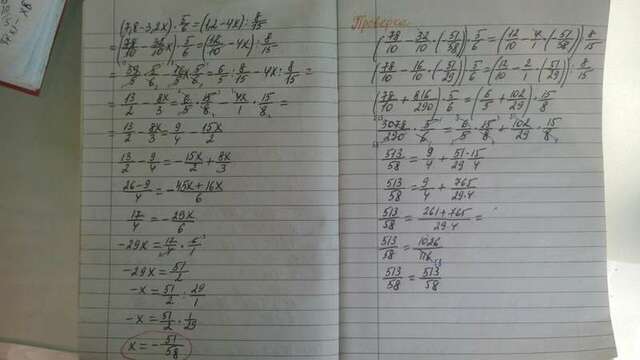 (7,8-3,2x)·5/6=(1,2-4x):8/15
(78/10-32/10x)·5/6=(12/10-4x):8/15
39/5·5/6-16x/5·5/6=6/5:8/15-4x:8/15=
=13/2-8x/3=6/5·15/8-4x/1·15/8=
=13/2-8x/3=9/4-15x/2
13/2-9/4=-15x/2+8x/3
26-9/4=-45x+16x/6
17/4=-29x/6
-29x=17/4·6/1
-29x=51/2
-x=51/2:29/1
-x=51/2·1/29
x=-51/58
Проверка
(78/10-32/10·(-51/58))·5/6=(12/10-4/1·(-51/58)):8/15
(78/10-16/10·(-51/29))·5/6=(12/10-2/1·(-51/29)):8/15
(78/10+816/290)·5/6=(6/5+102/29)·15/8
3078/290·5/6=6/5·15/8+102/29·15/8
513/58=9/4+51·15/29·4
513/58=9/4+765/29·4
513/58=261+765/29·4=
513/58=1026/116
513/58=513/58